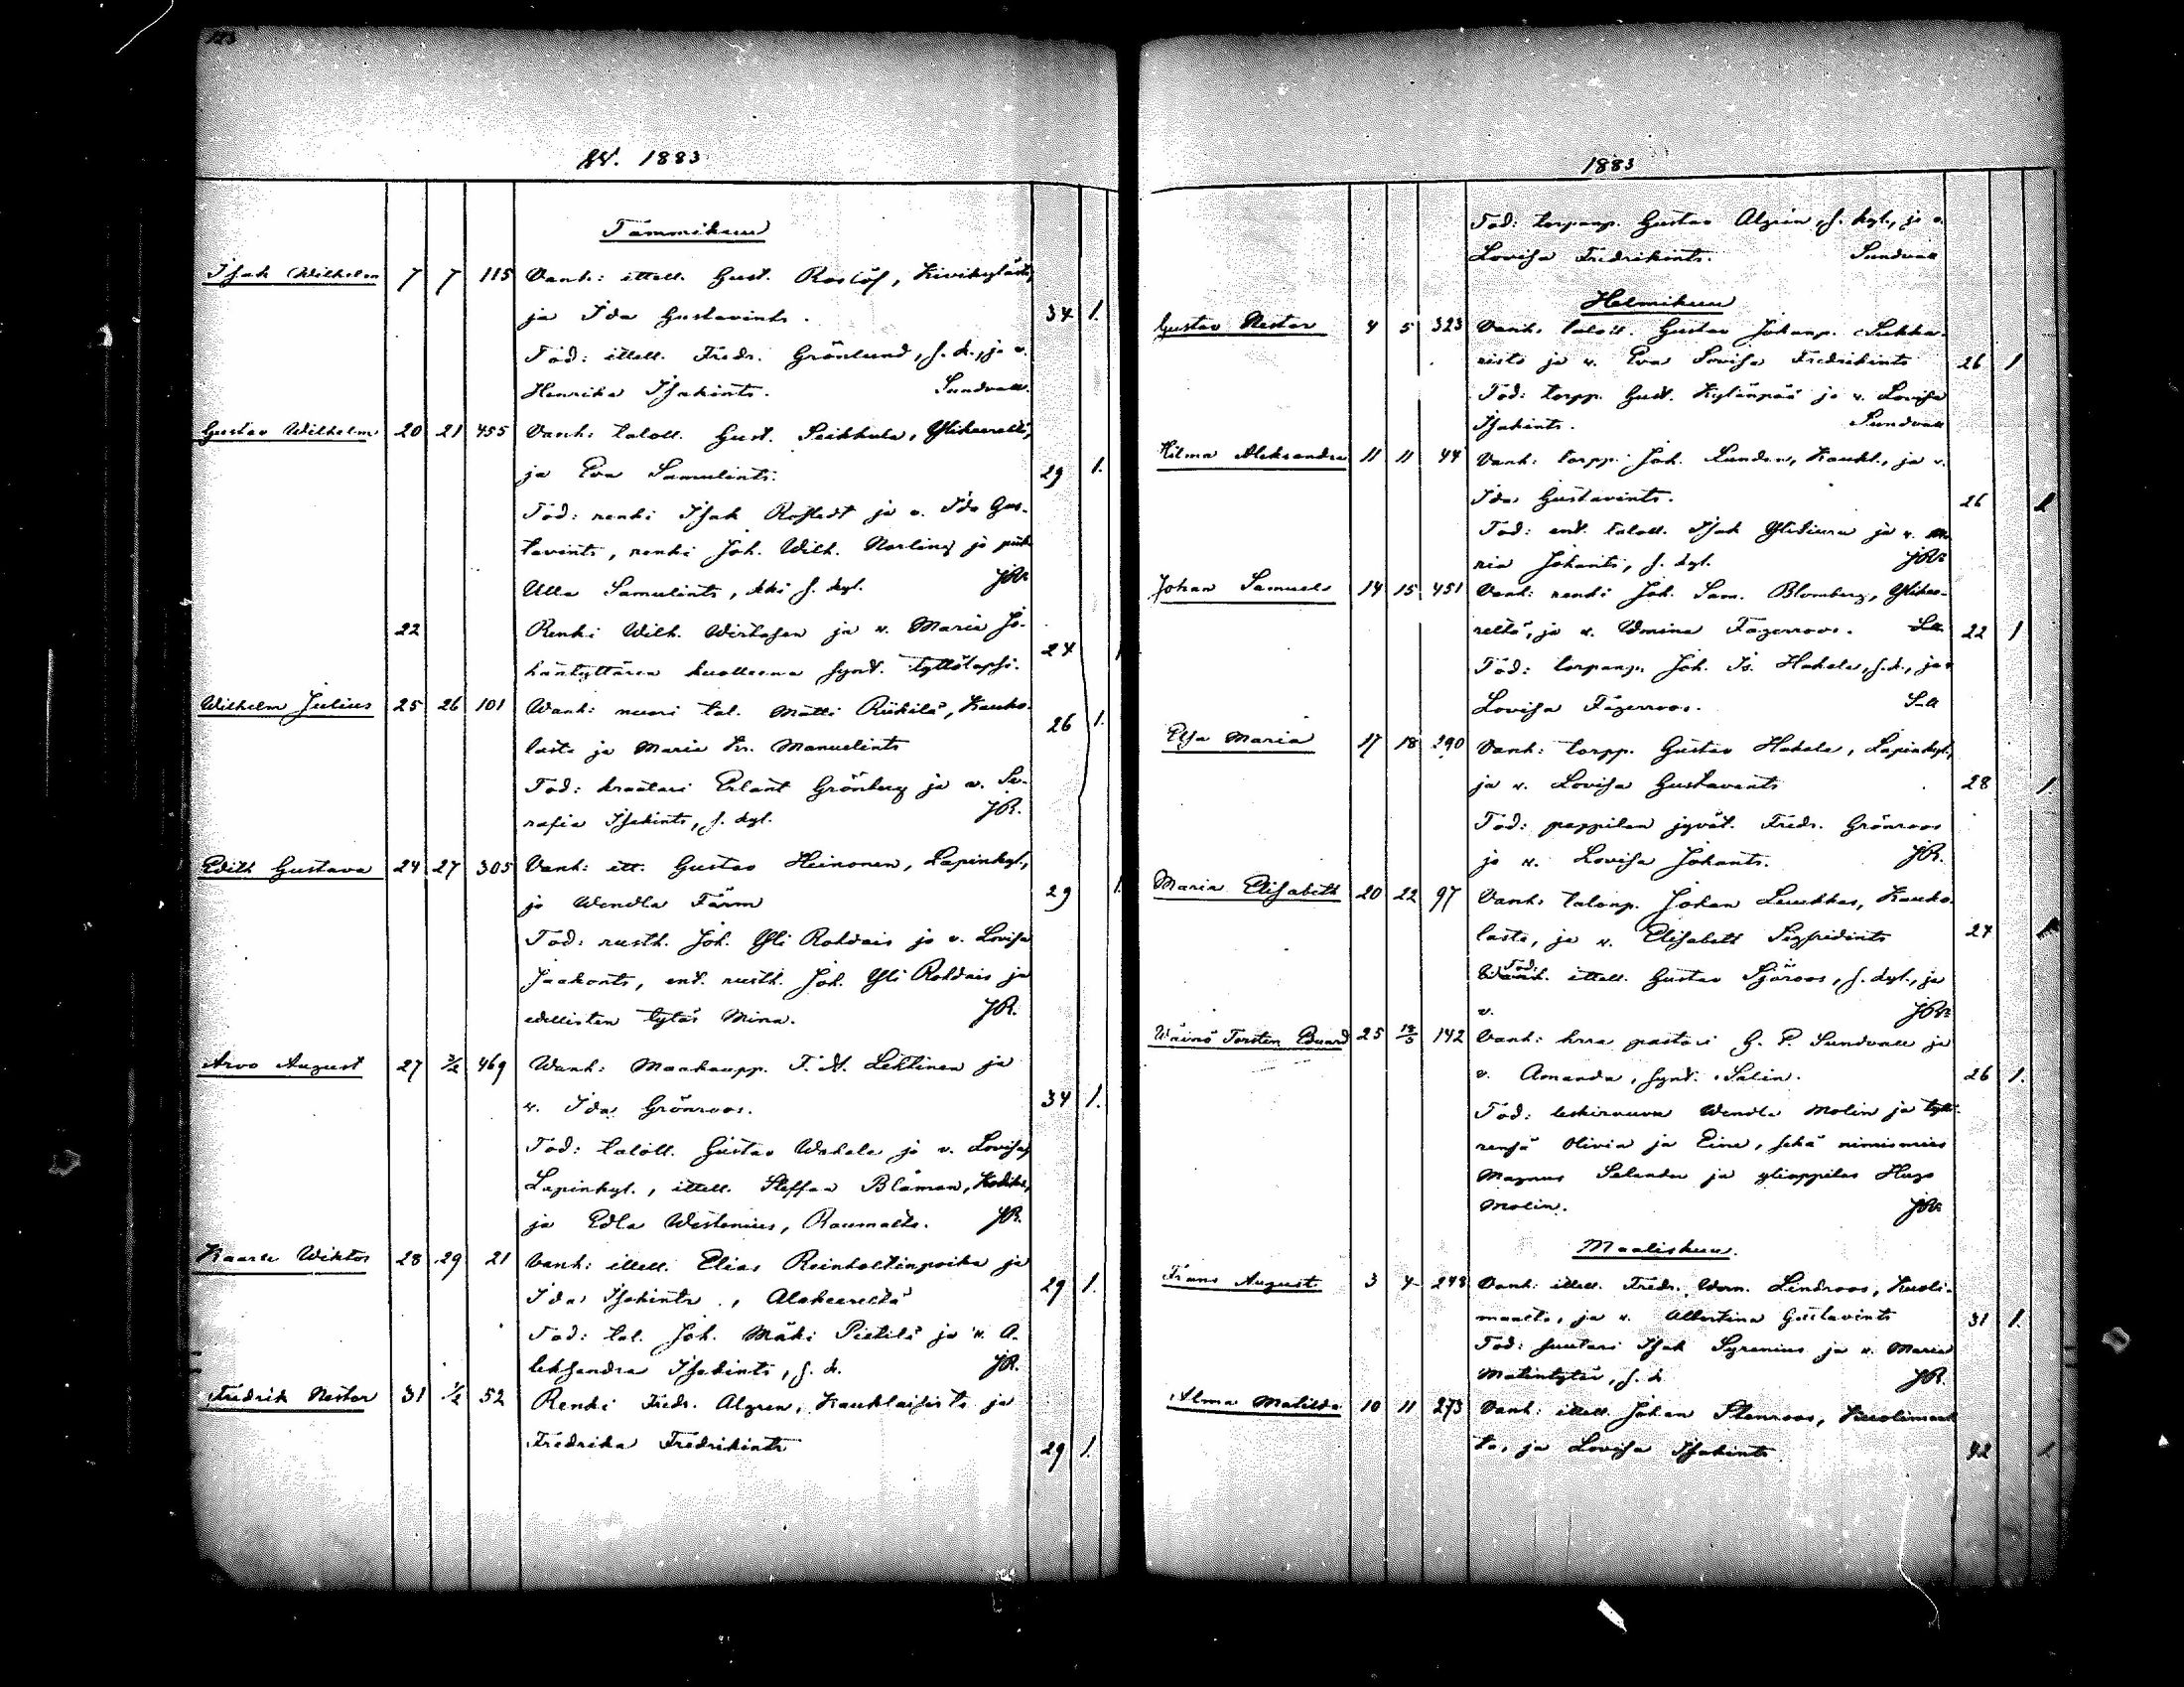 1883
Tammikuu
Isak Wilhelm 7 7 115 Vanh: ittell. Gust. Roslöf, Kivikylästä,
ja Ida Gustavints. 34 1.
Tod: ittell. Fredr. Grönlund, s. k., ja v.
Henrika Isakints. Sundvall.
Gustav Wilhelm 20 21 455 Vanh: taloll. Gust. Seikkula, Ylikeereltä,
ja Eva Samulints. 29 1.
Tod: renki Isak Rostedt ja v. Ida Gus-
tavints, renki Joh. Wilh. Norling ja piika
Ulla Samulints, kki s. kyl. JR
22 Renki Wilh. Wirtasen ja v. Maria Jo-
hantyttären kuolleena synt. tyttölapsi. 24 1
Wilhelm Julius 25 26 101 Wanh: nuori tal. Matti Riikilä, Kauko-
lasta ja Maria Kr. Manuelints 26 1.
Tod: kraatari Erlant Grönberg ja v. Se-
rafia Isakints, s. kyl. JR.
Edith Gustava 24 27 305 Vanh: itt. Gustav Heinonen, Lapinkyl.,
ja Wendla Färm 29 1.
Tod: rusth. Joh. Yli Rohdais ja v. Lovisa
Jaakonts, ent. rusth. Joh. Yli Rohdais ja
edellisten tytär Mina. JR.
Arvo August 27 3/2 469 Wanh: Maakaupp. F. A. Lehtinen ja
v. Ida Grönroos. 34 1.
Tod: taloll. Gustav Wahala ja v. Lovisa,
Lapinkyl., ittell. Steffan Blåman,
ja Edla Westenius, Raumalta. JR.
Kaarle Wiktor 28 29 21 Vanh: ittell. Elias Reinholtinpoika ja
Ida Isakints, Alakeereltä 29 1.
Tod: tal. Joh. Mäki Pietilä ja v. A-
leksandra Isakints, s. k. JR.
Fredrik Nestor 31 1/2 52 Renki Fredr. Algren, Kauklaisista ja
Fredrika Fredrikints 29 1.
1883
Tod: torpanp. Gustav Algren, s. kyl., ja v.
Lovisa Fredrikints. Sundvall
Helmikuu
Gustav Nestor 4 5 323 Vanh: taloll. Gustav Johanp. Sukka-
rista ja v. Eva Lovisa Fredrikints 26 1
Tod: torpp. Gust. Kylänpää ja v. Lovisa
Isakints. Sundvall
Hilma Aleksandra 11 11 44 Vanh: torpp. Joh. Lunden, Kaukl., ja v.
Ida Gustavints. 26 1
Tod: ent. taloll. Isak Ylidiuru ja v. Ma-
ria Johants, s. kyl. JR
Johan Samuel 14 15 451 Vanh: renki Joh. Sam. Blomberg, Ylikee-
reltä, ja v. Wmina Fagerroos. 22 1
Tod: torpanp. Joh. Is. Hakala, s. k., ja v.
Lovisa Fagerroos. S-ll
Elsa Maria 17 18 290 Vanh: torpp. Gustav Hakala, Lapinkyl.,
ja v. Lovisa Gustavints 28 1
Tod: pappilan jyvät. Fredr. Grönroos
ja v. Lovisa Johants. JR.
Maria Elisabeth 20 22 97 Vanh: talonp. Johan Luukkas, Kauko-
lasta, ja v. Elisabeth Segfridints 24 1
Tod. ittell. Gustav Sjöroos, s. kyl., ja
v. JR
Wäinö Torsten Eduard 25 18/3 142 Vanh: hrra pastori G. P. Sundvall ja
v. Amanda, synt. Salin. 26 1.
Tod: leskirouva Wendla Molin ja tyt-
rensä Olivia ja Eine, sekä nimismies
Magnus Selander ja ylioppilas Hugo
Molin. JR
Maaliskuu.
Frans August 3 4 248 Vanh: ittell. Fredr. Wern. Lindroos, Kuoli-
maalta, ja v. Albertina Gustavints 31 1.
Tod: suutari Isak Syrenius ja v. Maria
Matintytär, s. k. JR.
Alma Matilda 10 11 273 Vanh: ittell. Johan Stenroos, Kuolimaal-
ta, ja Lovisa Isakints 42 1